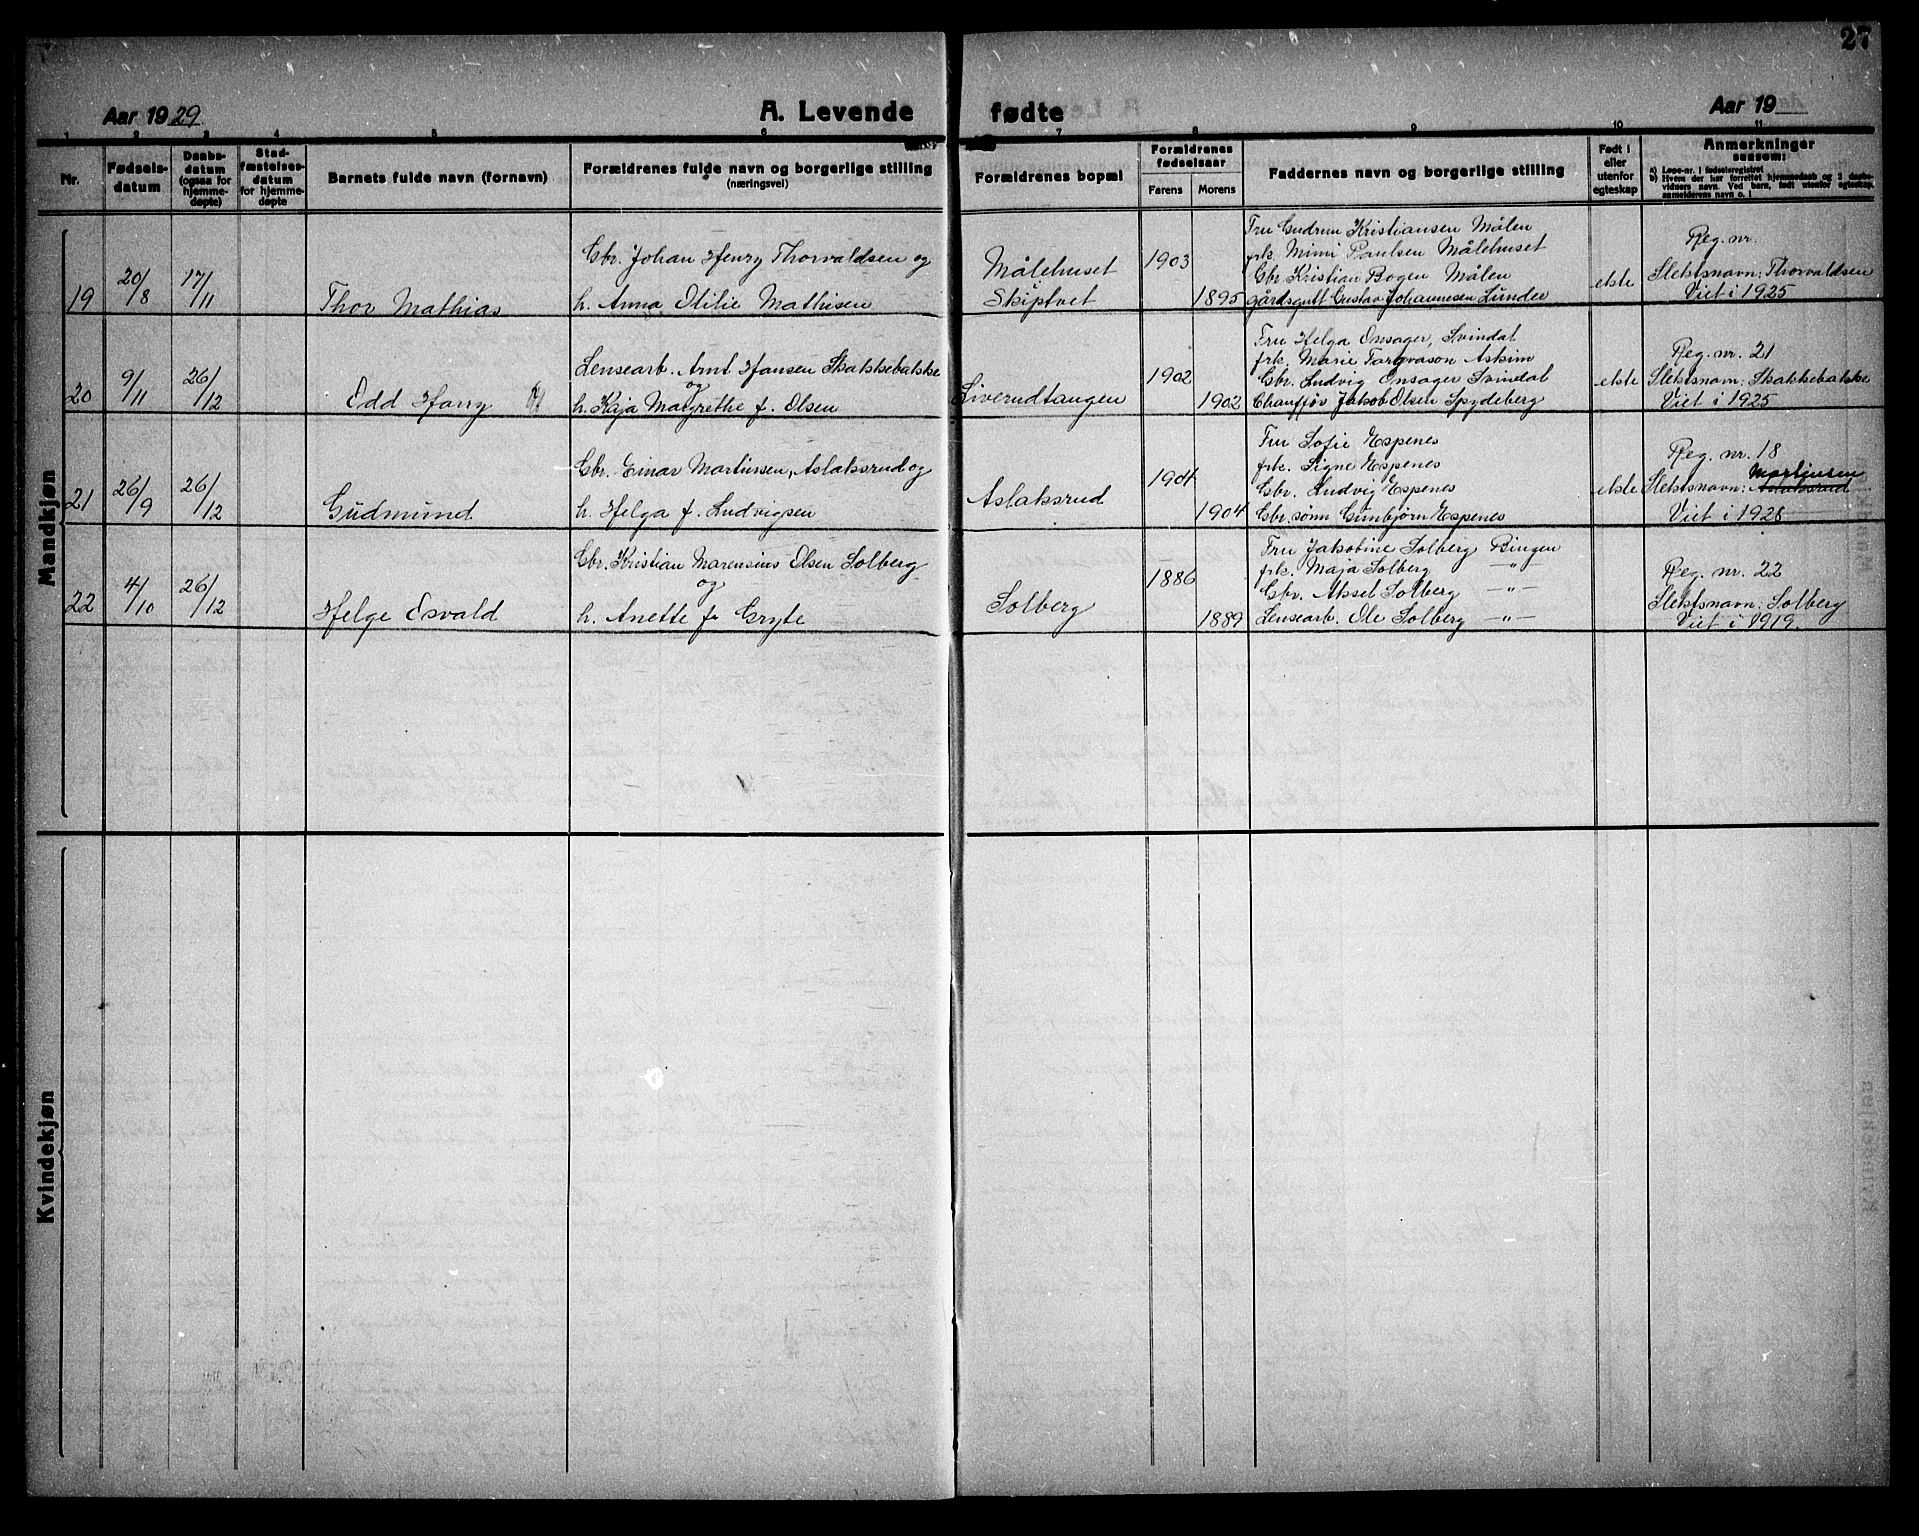 27
Aar 1929
A. Levende
fødte
Aar 19
1 2 3 4 5 6 7 8 9 10 11
Nr.
Fødsels-
datum
Daabs-
datum
(ogsaa for
hjemme-
døpte)
Stad-
fæstelses-
datum
for hjemme-
døpte
Barnets fulde navn (fornavn)
Forældrenes fulde navn og borgerlige stilling
(næringsvei)
Forældrenes bopæl
Forældrenes
fødselsaar
Farens Morens
Faddernes navn og borgerlige stilling
Født i
eller
utenfor
egteskap
Anmerkninger
saasom:
a) Løpe-nr. i fødselsregistret
b) Hvem der har forrettet hjemmedaab og 2 daabs-
vidners navn. Ved barn, født utenfor egteskap,
anmelderens navn o. l.
Mandkjøn
19
20/8
17/11
Thor Mathias
Gbr. Johan Henry Thorvaldsen og
h. Anna Otilie Mathisen
Målehuset
Skiptvet
1903
1895
Fru Gudrun Kristiansen Målen
frk. Mimi Paulsen Målehuset
Gbr. Kristian Bogen Målen
gårdsgutt Gustav Johannesen Lunder
ekte
Reg. nr.
Slektsnavn: Thorvaldsen
Viet i 1925
20
9/11
26/12
Edd Harry
Lensearb. Arnt Hansen Skakkebakke
og
h. Kaja Margrethe f. Olsen
Siverudtangen
1902
1902
Fru Helga Onsager, Svindal
frk. Marie Torgvason Askim
Gbr. Ludvig Onsager Svindal
Chauffør Jakob Olsen Spydeberg
ekte
Reg. nr. 21
Slektsnavn: Skakkebakke
Viet i 1925
21
26/9
26/12
Gudmund
Gbr. Einar Martinsen, Aslaksrud og
h. Helga f. Ludvigsen
Aslaksrud
1904
1904
Fru Sofie Espenes
frk. Signe Espenes
Gbr. Ludvig Espenes
Gbr. sønn Gunbjørn Espenes
ekte
Reg. nr. 18
Martinsen
Slektsnavn: Aslaksrud
Viet i 1928
22
4/10
26/12
Helge Esvald
Gbr. Kristian Marensius Olsen Solberg
og
h. Anette f. Gryte
Solberg
1886
1889
Fru Jakobine Solberg Bingen
frk. Maja Solberg —"—
Gbr. Aksel Solberg —"—
Lensearb. Ole Solberg —"—
Reg. nr. 22
Slektsnavn: Solberg
Viet i 1919.
Kvindekjøn